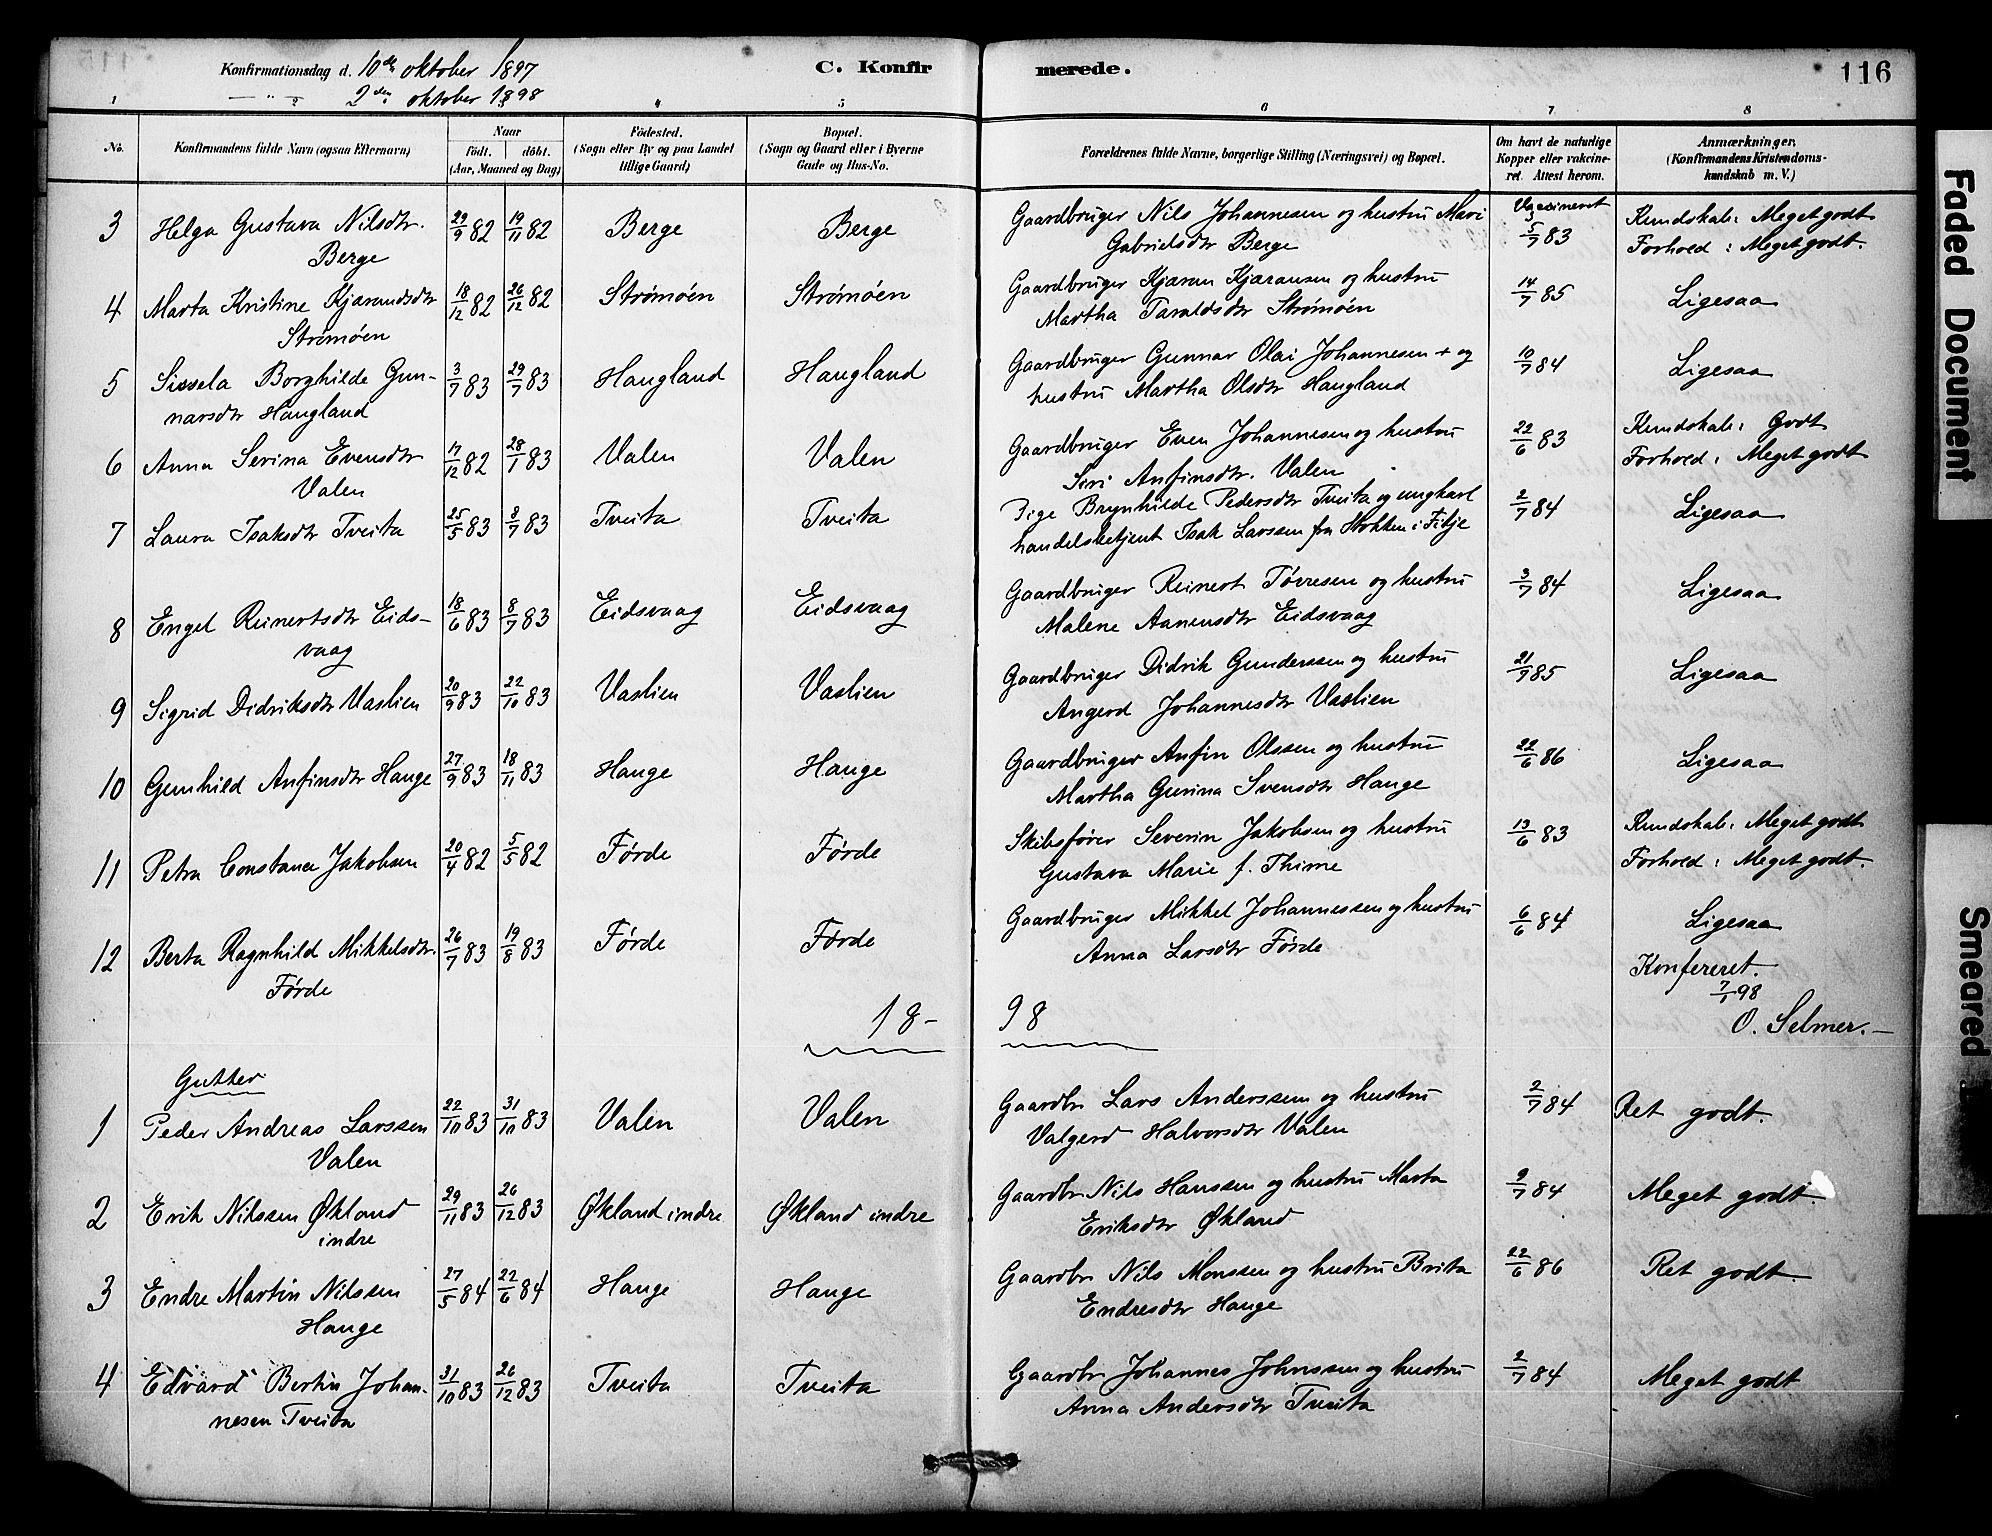 Konfirmationsdag d. 10de oktober 1897
— " — 2den oktober 1898
C. Konfirmerede.
116
1 2 3 4 5 6 7 8
No.
Konfirmandens fulde Navn (ogsaa Efternavn)
Naar
födt. döbt.
(Aar, Maaned og Dag)
Födested.
(Sogn eller By og paa Landet
tillige Gaard)
Bopæl.
(Sogn og Gaard eller i Byerne
Gade og Hus-No.
Forældrenes fulde Navne, borgerlige Stilling (Næringsvei) og Bopæl.
Om havt de naturlige
Kopper eller vakcine-
ret. Attest herom.
Anmærkninger.
(Konfirmandens Kristendoms-
kundskab m. V.)
3 Helga Gustava Nilsdtr. 29/9 82 19/11 82 Berge Berge Gaardbruger Nils Johannesen og hustru Mari Vaccineret 5/7 83 Kundskab: Meget godt
Berge Gabrielsdtr Berge Forhold: Meget godt.
4 Marta Kristine Kjarandsdtr 18/12 82 26/12 82 Strømøen Strømøen Gaardbruger Kjaran Kjaransen og hustru 14/7 85 Ligesaa
Strømøen Martha Taraldsdtr Strømøen
5 Sissela Borghilde Gun- 3/7 83 29/7 83 Haugland Haugland Gaardbruger Gunnar Olai Johannesen + og 10/7 84 Ligesaa
narsdtr Haugland hustru Martha Olsdtr Haugland
6 Anna Serina Evensdtr 17/12 82 28/1 83 Valen Valen Gaardbruger Even Johannesen og hustru 22/6 83 Kundskab: Godt
Valen Siri Anfinsdtr. Valen Forhold: Meget godt
7 Laura Isaksdtr Tveita 25/5 83 8/7 83 Tveita Tveita Pige Brynhilde Pedersdtr Tveita og ungkarl 2/7 84 Ligesaa
handelsbetjent Isak Larssen fra Stokken i Fitje
8 Engel Reinertsdtr Eids- 18/6 83 8/7 83 Eidsvaag Eidsvaag Gaardbruger Reinert Tørresen og hustru 3/7 84 Ligesaa
vaag Malene Aanensdtr Eidsvaag
9 Sigrid Didriksdtr Vaslien 20/9 83 22/10 83 Vaslien Vaslien Gaardbruger Didrik Gunderssen og hustru 21/7 85 Ligesaa
Angerd Johannesdtr Vaslien
10 Gunhild Anfinsdtr Hauge 27/9 83 18/11 83 Hauge Hauge Gaardbruger Anfin Olssen og hustru 22/6 86 Ligesaa
Martha Gurina Svensdtr Hauge
11 Petra Constance Jakobsen 20/4 82 5/5 82 Førde Førde Skibsfører Severin Jakobsen og hustru 13/6 83 Kundskab: Meget godt
Gustava Marie f. Thime Forhold: Meget godt.
12 Berta Ragnhild Mikkelsdtr. 26/7 83 19/8 83 Førde Førde Gaardbruger Mikkel Johannessen og hustru 6/6 84 Ligesaa
Førde Anna Larsdtr Førde
Konfereret.
7/1 98
O. Selmer.
18-98
Gutter
1 Peder Andreas Larssen 22/10 83 31/10 83 Valen Valen Gaardbr Lars Anderssen og hustru 2/7 84 Ret godt.
Valen Valgerd Halvorsdtr Valen
2 Erik Nilssen Økland 29/11 83 26/12 83 Økland indre Økland indre Gaardbr Nils Hanssen og hustru Marta 9/7 84 Meget godt.
indre Eriksdtr Økland
3 Endre Martin Nilssen 27/5 84 22/6 84 Hauge Hauge Gaardbr Nils Monssen og hustru Brita 22/6 86 Ret godt.
Hauge Endresdtr Hauge
4 Edvard Bertin Johan- 31/10 83 26/12 83 Tveita Tveita Gaardbr Johannes Johnssen og hustru 2/7 84 Meget godt
nesen Tveita Anna Andersdtr Tveita
Faded Document
Smeared